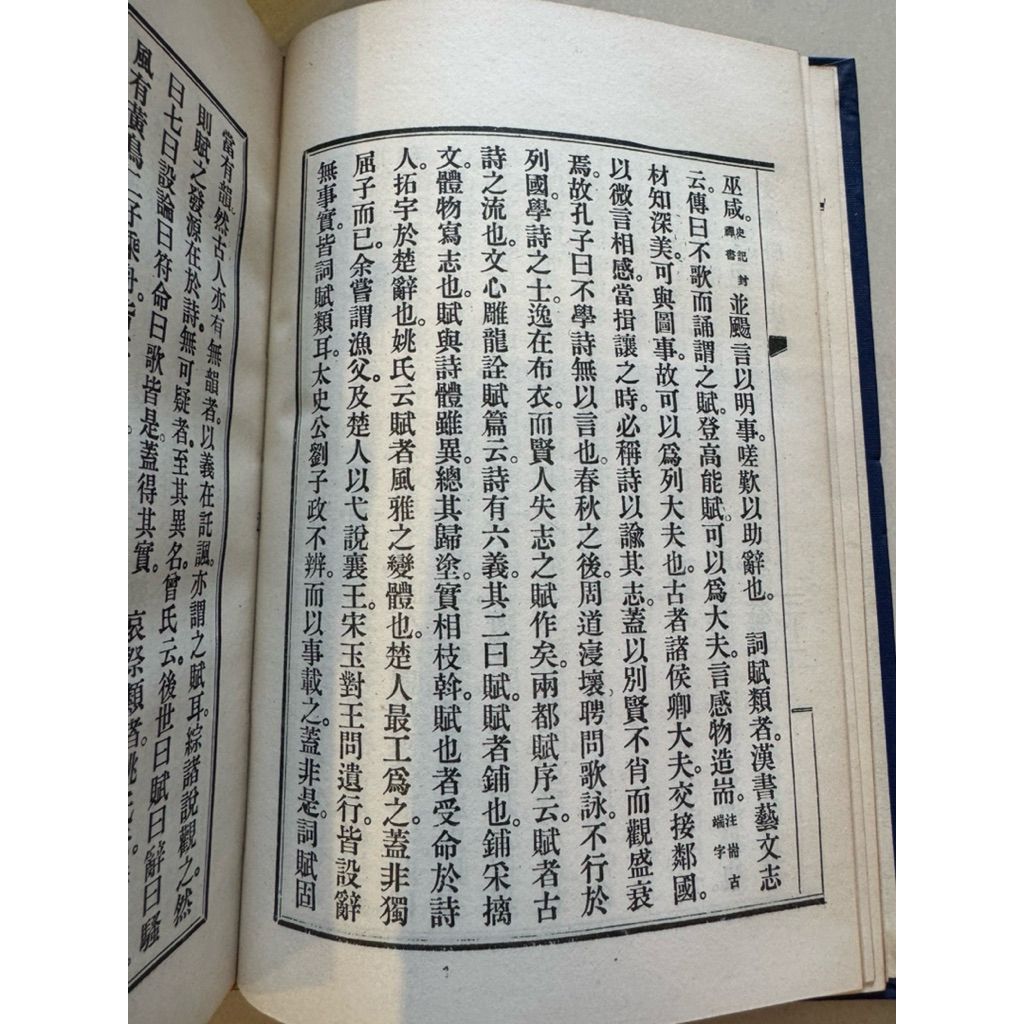 巫咸。史記封禪書並颺言以明事。嗟歎以助辭也　詞賦類者。漢書藝文志
云。傳曰不歌而誦謂之賦。登高能賦可以爲大夫。言感物造耑。注耑古端字
材知深美。可與圖事。故可以爲列大夫也。古者諸侯卿大夫。交接鄰國。
以微言相感。當揖讓之時。必稱詩以諭其志。蓋以別賢不肖而觀盛衰
焉。故孔子曰不學詩無以言也。春秋之後。周道寖壞聘問歌詠。不行於
列國。學詩之士。逸在布衣。而賢人失志之賦作矣。兩都賦序云。賦者古
詩之流也。文心雕龍詮賦篇云。詩有六義。其二曰賦。賦者鋪也。鋪采摛
文。體物寫志也。賦與詩體雖異。總其歸塗。實相枝榦。賦也者受命於詩
人。拓宇於楚辭也。姚氏云。賦者風雅之變體也。楚人最工爲之。蓋非獨
屈子而已。余嘗謂漁父。及楚人以弋說襄王。宋玉對王問遺行。皆設辭
無事實。皆詞賦類耳。太史公劉子政不辨。而以事載之。蓋非是。詞賦固
當有韻。然古人亦有無韻者。以義在託諷。亦謂之賦耳。綜諸說觀之。然
則賦之發源在於詩。無可疑者。至其異名。曾氏云。後世曰賦曰辭曰騷
曰七曰設論曰符命曰歌皆是。蓋得其實　哀祭類者。
風有黃鳥二子乘舟。